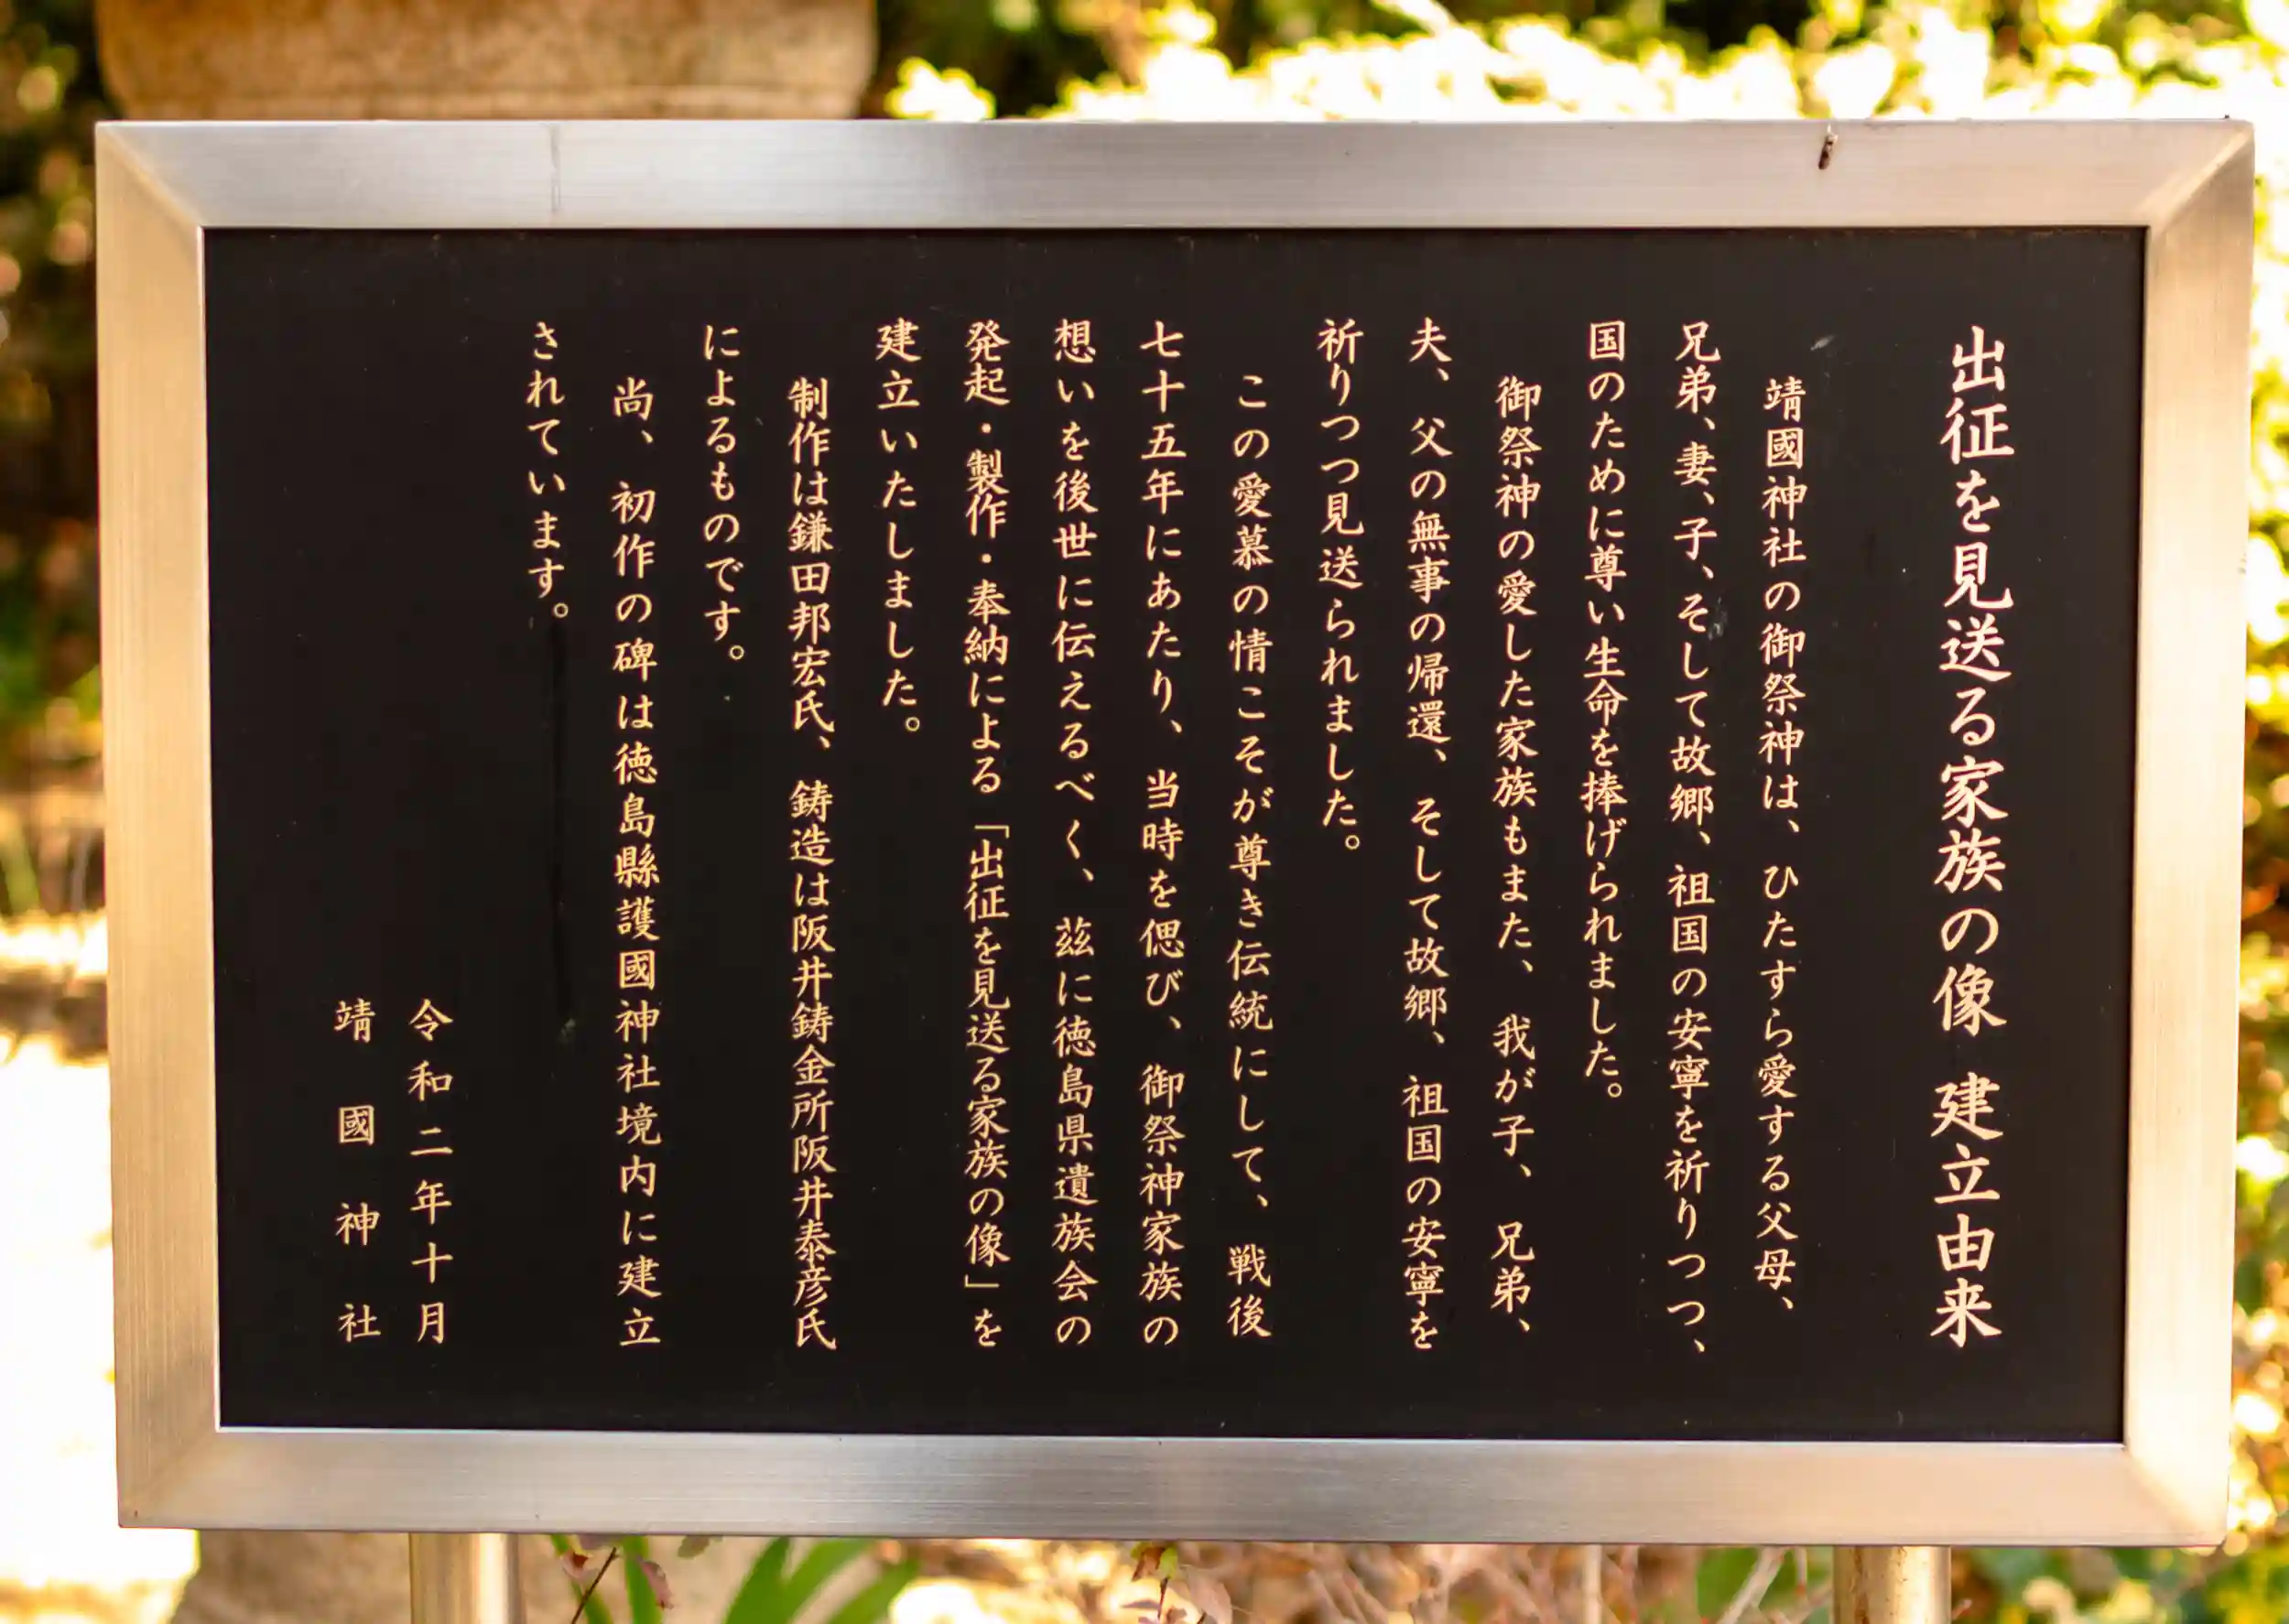 出征を見送る家族の像 建立由来
靖國神社の御祭神は、ひたすら愛する父母、
兄弟、妻、子、そして故郷、祖国の安寧を祈りつつ、
国のために尊い生命を捧げられました。
御祭神の愛した家族もまた、我が子、兄弟、
夫、父の無事の帰還、そして故郷、祖国の安寧を
祈りつつ見送られました。
この愛慕の情こそが尊き伝統にして、戦後
七十五年にあたり、当時を偲び、御祭神家族の
想いを後世に伝えるべく、茲に徳島県遺族会の
発起・製作・奉納による「出征を見送る家族の像」を
建立いたしました。
制作は鎌田邦宏氏、鋳造は阪井鋳金所阪井泰彦氏
によるものです。
尚、初作の碑は徳島縣護國神社境内に建立
されています。
令和二年十月
靖國神社